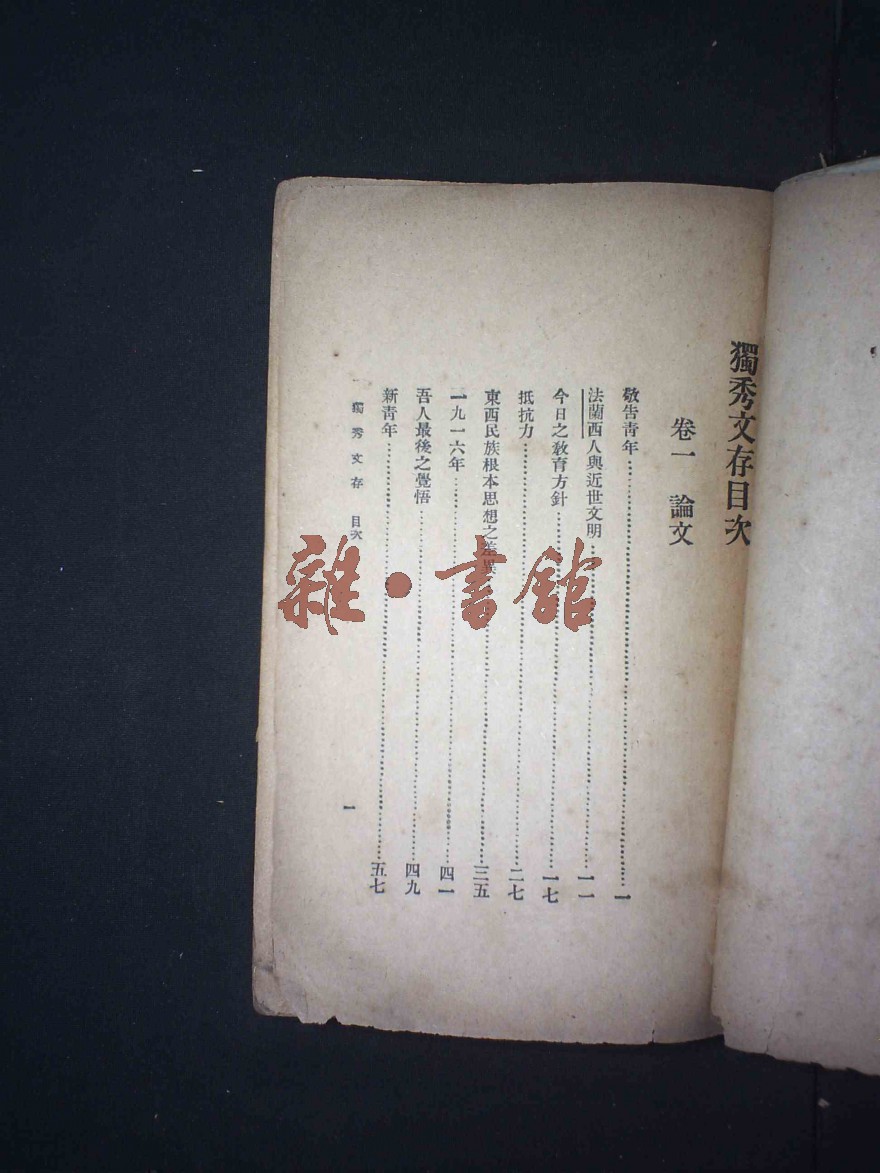 獨秀文存目次
卷一　論文
敬告青年……一
法蘭西人與近世文明……一一
今日之教育方針……一七
抵抗力……二七
東西民族根本思想之差異……三五
一九一六年……四一
吾人最後之覺悟……四九
新青年……五七
獨秀文存　目次
一
雜·書館